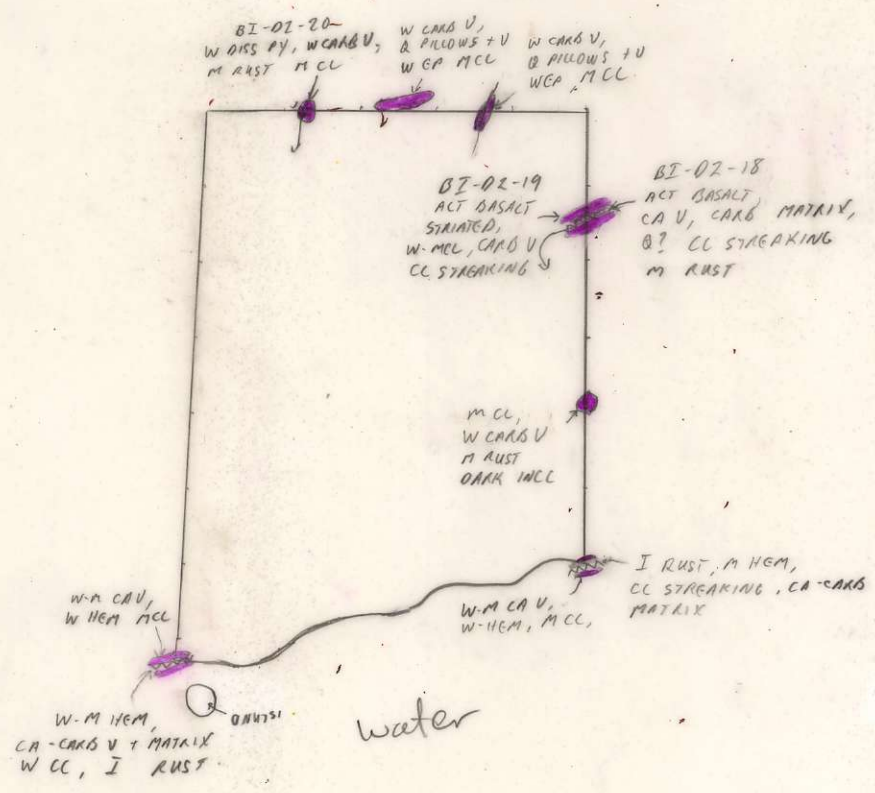 BI-DZ-20
W DISS PY, W CARB V,
M RUST M CL
W CARB V,
Q PILLOWS + V
W EP MCL
W CARB V,
Q PILLOWS + V
WEP, MCL
BI-DZ-19
ACT BASALT
STRIATED,
W-MCL, CARB V
CL STREAKING
BI-DZ-18
ACT BASALT,
CA V, CARB MATRIX,
Q? CL STREAKING
M RUST
M CL,
W CARB V
M RUST
DARK INCL
I RUST, M HEM,
CL STREAKING, CA-CARB
MATRIX
W-M CA V,
W-HEM, M CL,
W-M CA V,
W HEM MCL
ISLAND
W-M HEM,
CA-CARB V + MATRIX
W CC, I RUST
water